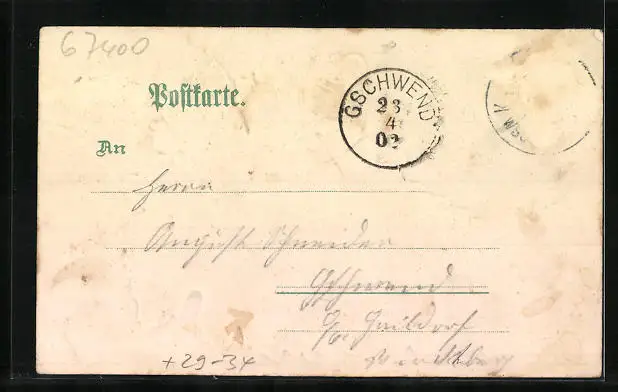 67400
Postkarte.
GSCHWEND
23
4
02
An
Herrn
August Schneider
Gschwend
Gaildorf
+29-34